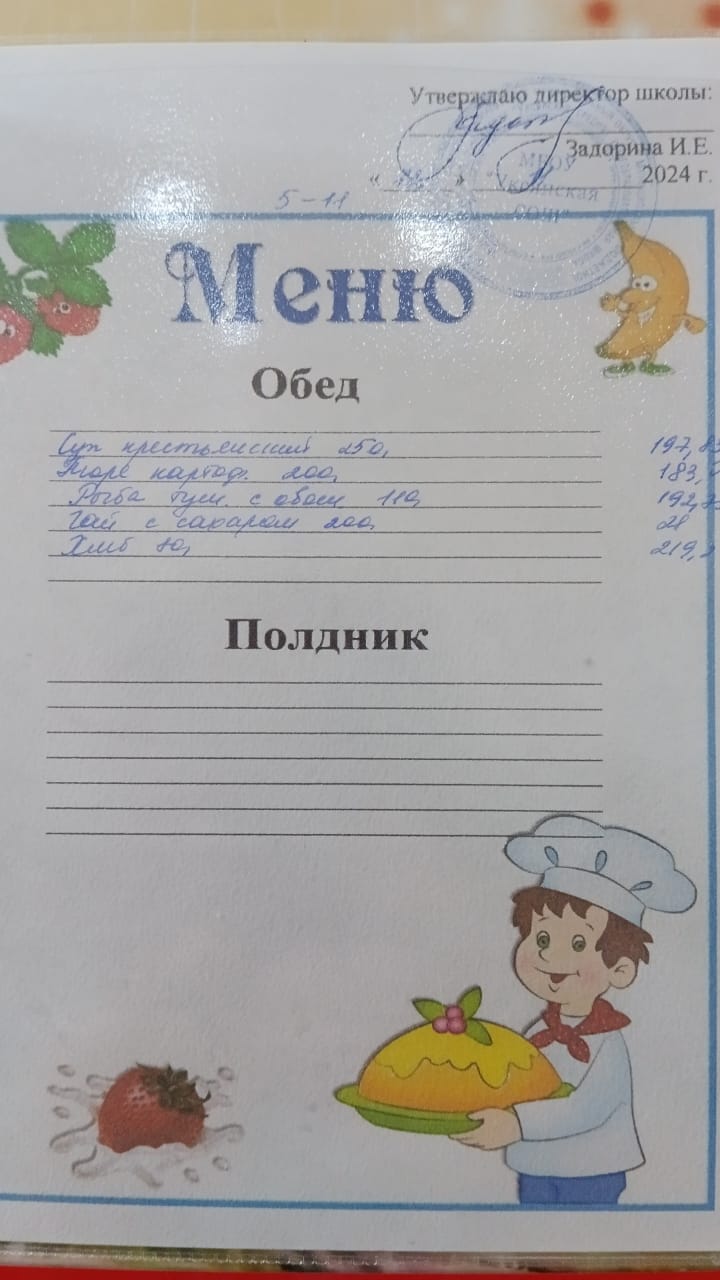 Утверждаю директор школы:
Задорина И.Е.
« » 2024 г.
МКОУ
СОШ"
5-11
Меню
Обед
Суп крестьянский 250, 197,
Пюре картоф. 200, 183,
Рыба туш. с овощ 110, 192,
Чай с сахаром 200, 28
Хлеб 219,
Полдник